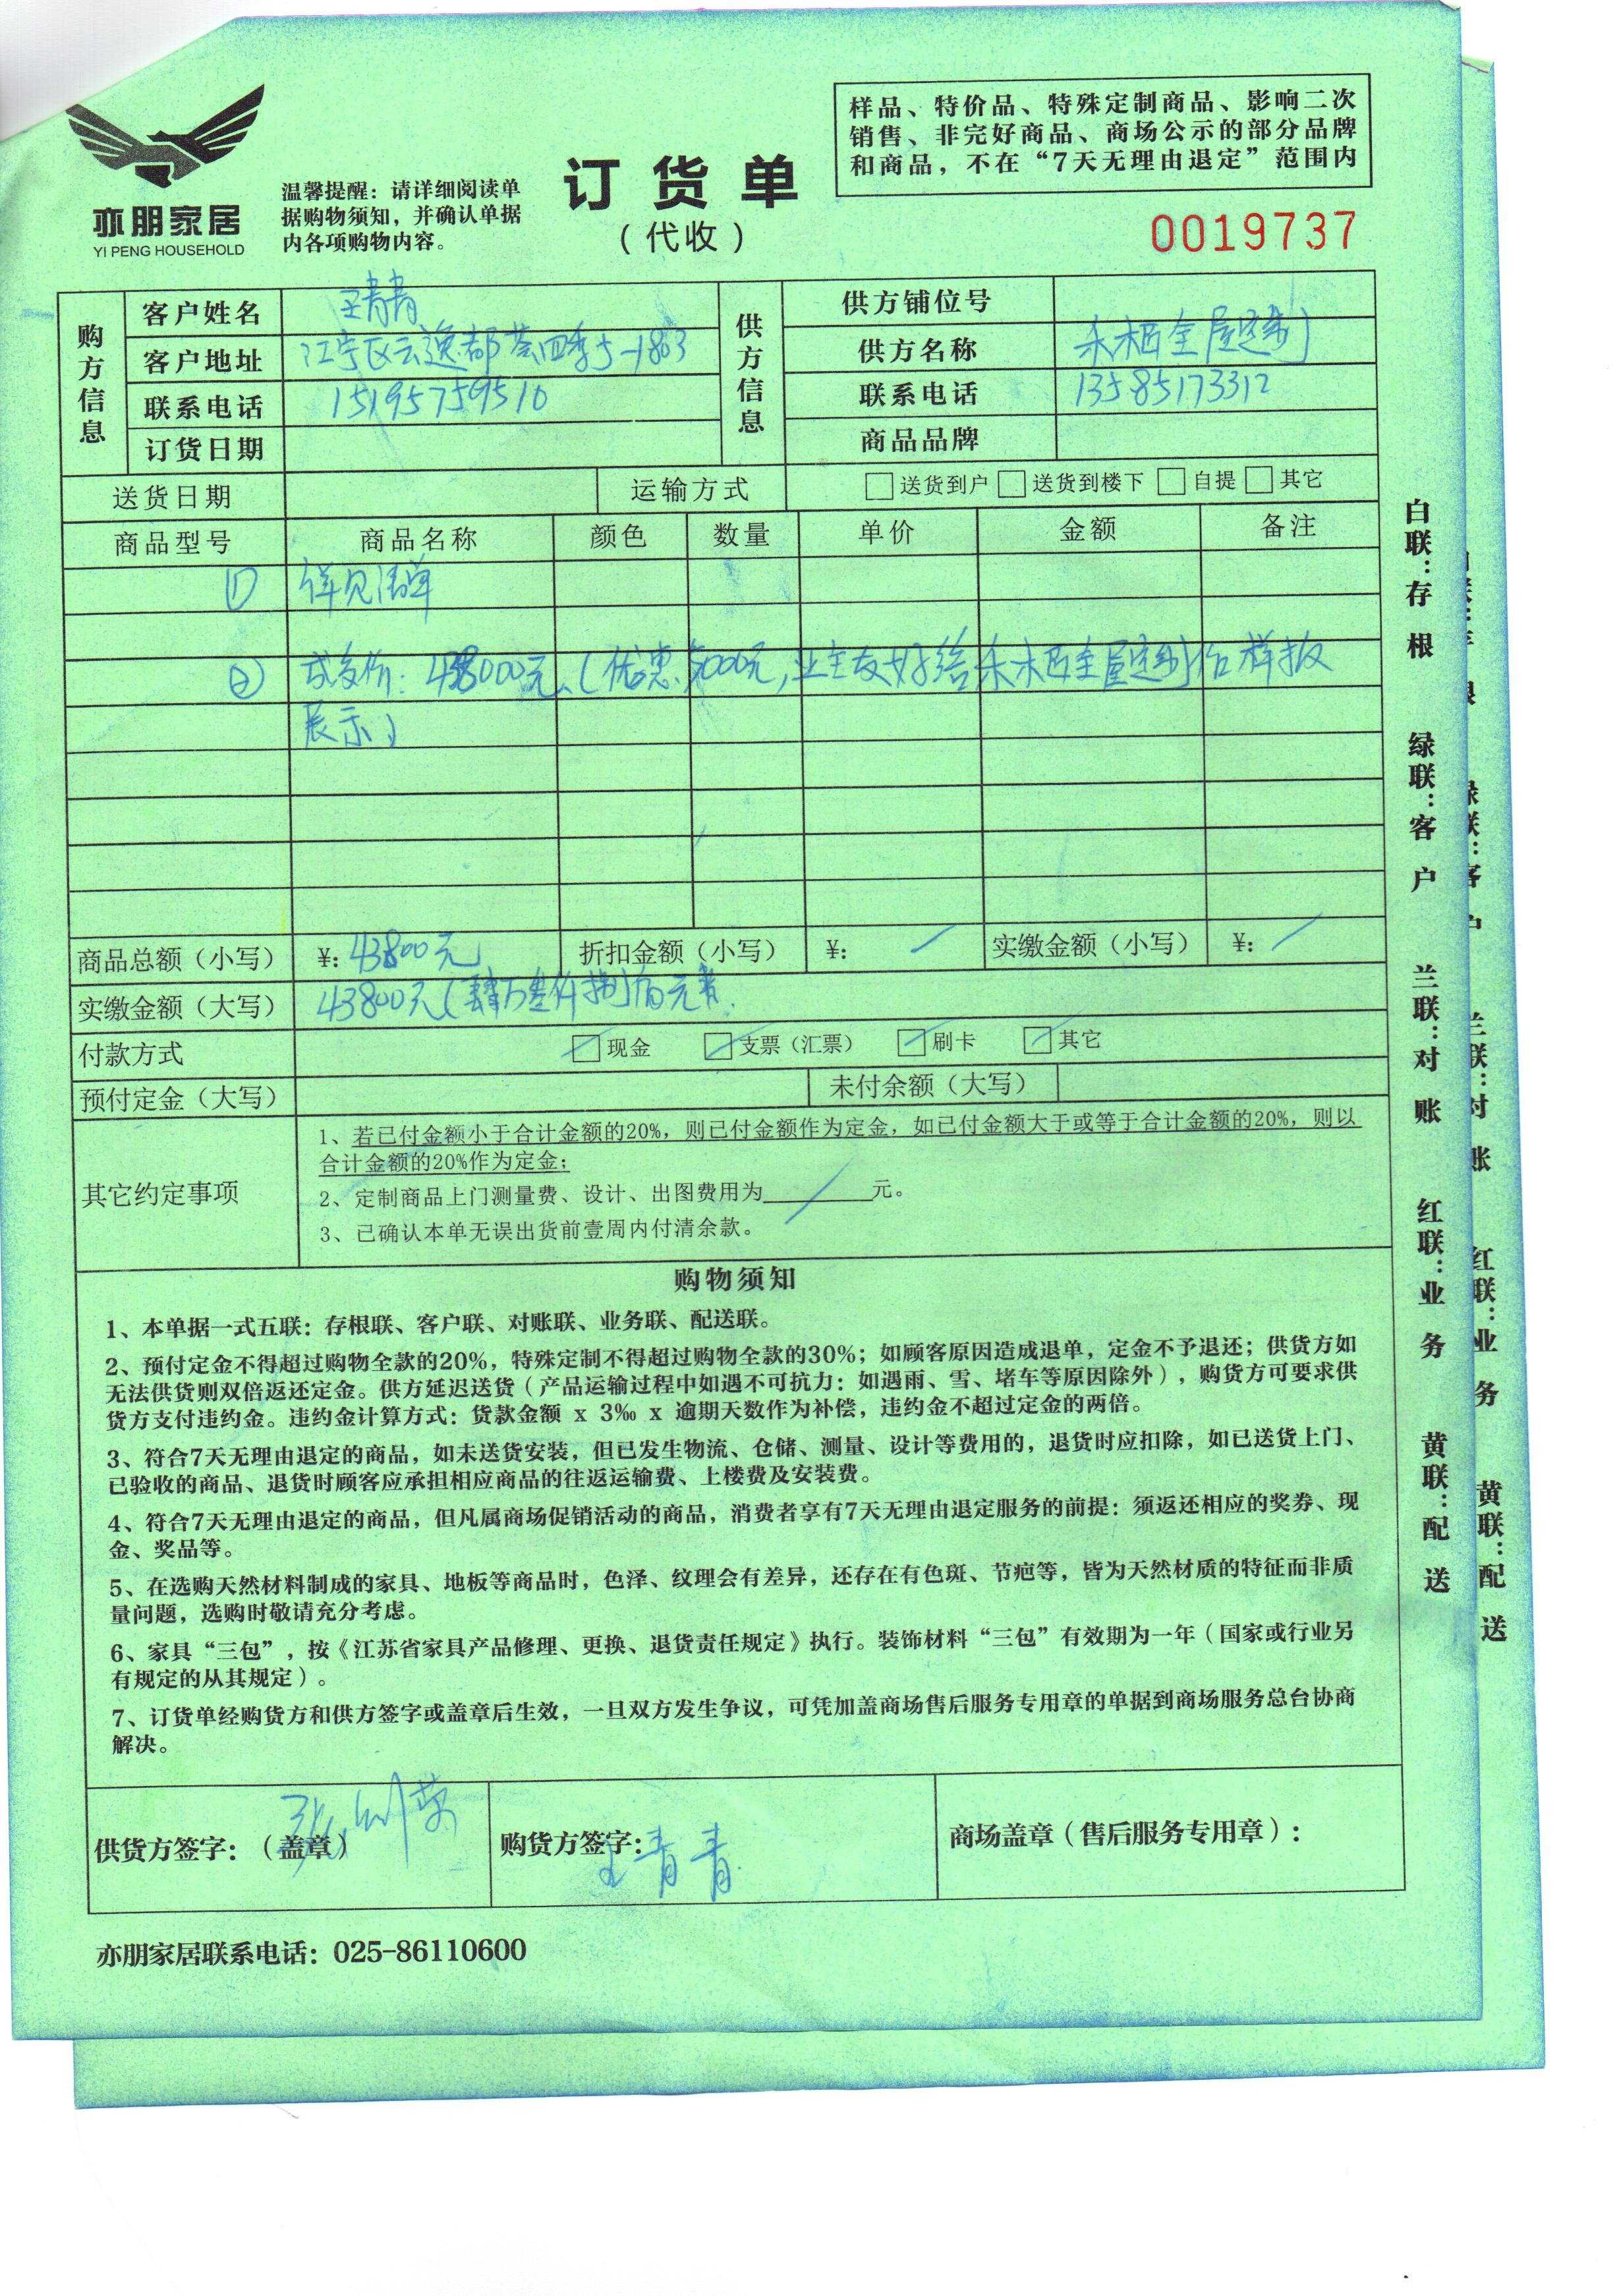 亦朋家居
YI PENG HOUSEHOLD
温馨提醒：请详细阅读单
据购物须知，并确认单据
内各项购物内容。
订货单
（代收）
样品、特价品、特殊定制商品、影响二次
销售、非完好商品、商场公示的部分品牌
和商品，不在“7天无理由退定”范围内
0019737
购方信息
客户姓名 王青青
客户地址 江宁区云逸都荟四季5-1803
联系电话 15195759510
订货日期
供方信息
供方铺位号
供方名称 禾木西全屋定制
联系电话 13585173312
商品品牌
送货日期 运输方式 □送货到户 □送货到楼下 □自提 □其它
商品型号 商品名称 颜色 数量 单价 金额 备注
① 详见清单
② 成交价：43800元（优惠 000元，业主友好给禾木西全屋定制作样板
展示）
商品总额（小写） ¥: 43800元 折扣金额（小写） ¥: / 实缴金额（小写） ¥: /
实缴金额（大写） 43800元（肆万叁仟捌佰元整
付款方式 □现金 □支票（汇票） □刷卡 □其它
预付定金（大写） 未付余额（大写）
其它约定事项
1、若已付金额小于合计金额的20%，则已付金额作为定金，如已付金额大于或等于合计金额的20%，则以
合计金额的20%作为定金；
2、定制商品上门测量费、设计、出图费用为____/____元。
3、已确认本单无误出货前壹周内付清余款。
购物须知
1、本单据一式五联：存根联、客户联、对账联、业务联、配送联。
2、预付定金不得超过购物全款的20%，特殊定制不得超过购物全款的30%；如顾客原因造成退单，定金不予退还；供货方如
无法供货则双倍返还定金。供方延迟送货（产品运输过程中如遇不可抗力：如遇雨、雪、堵车等原因除外），购货方可要求供
货方支付违约金。违约金计算方式：货款金额 x 3‰ x 逾期天数作为补偿，违约金不超过定金的两倍。
3、符合7天无理由退定的商品，如未送货安装，但已发生物流、仓储、测量、设计等费用的，退货时应扣除，如已送货上门、
已验收的商品、退货时顾客应承担相应商品的往返运输费、上楼费及安装费。
4、符合7天无理由退定的商品，但凡属商场促销活动的商品，消费者享有7天无理由退定服务的前提：须返还相应的奖券、现
金、奖品等。
5、在选购天然材料制成的家具、地板等商品时，色泽、纹理会有差异，还存在有色斑、节疤等，皆为天然材质的特征而非质
量问题，选购时敬请充分考虑。
6、家具“三包”，按《江苏省家具产品修理、更换、退货责任规定》执行。装饰材料“三包”有效期为一年（国家或行业另
有规定的从其规定）。
7、订货单经购货方和供方签字或盖章后生效，一旦双方发生争议，可凭加盖商场售后服务专用章的单据到商场服务总台协商
解决。
供货方签字：（盖章）
购货方签字：王青青
商场盖章（售后服务专用章）：
亦朋家居联系电话：025-86110600
白联：存根 绿联：客户 兰联：对账 红联：业务 黄联：配送
绿联：客户 兰联：对账 红联：业务 黄联：配送